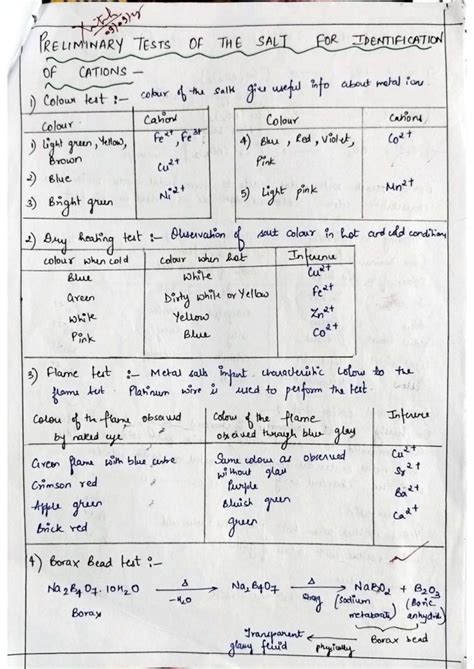 PRELIMINARY TESTS OF THE SALT FOR IDENTIFICATION
OF CATIONS –
1) Colour test :- colour of the salts give useful info about metal ions.
Colour Cations
1) Light green, Yellow, Brown Fe²⁺, Fe³⁺
2) Blue Cu²⁺
3) Bright green Ni²⁺
Colour Cations
4) Blue, Red, Violet, Pink Co²⁺
5) Light pink Mn²⁺
2) Dry heating test :- Observation of salt colour in hot and cold conditions
colour when cold colour when hot Inference
Blue White Cu²⁺
Green Dirty white or Yellow Fe²⁺
White Yellow Zn²⁺
Pink Blue Co²⁺
3) Flame test :- Metal salts impart characteristic colour to the
flame test. Platinum wire is used to perform the test.
Colour of the flame observed by naked eye Colour of the flame observed through blue glass Inference
Green flame with blue centre Same colour as observed without glass Cu²⁺
Crimson red Purple Sr²⁺
Apple green Bluish green Ba²⁺
Brick red Green Ca²⁺
4) Borax Bead test :-
Na₂B₄O₇.10H₂O Δ → -H₂O Na₂B₄O₇ Δ → strong NaBO₂ + B₂O₃
Borax (sodium metaborate) (Boric anhydride)
Transparent glassy fluid ← physically Borax bead